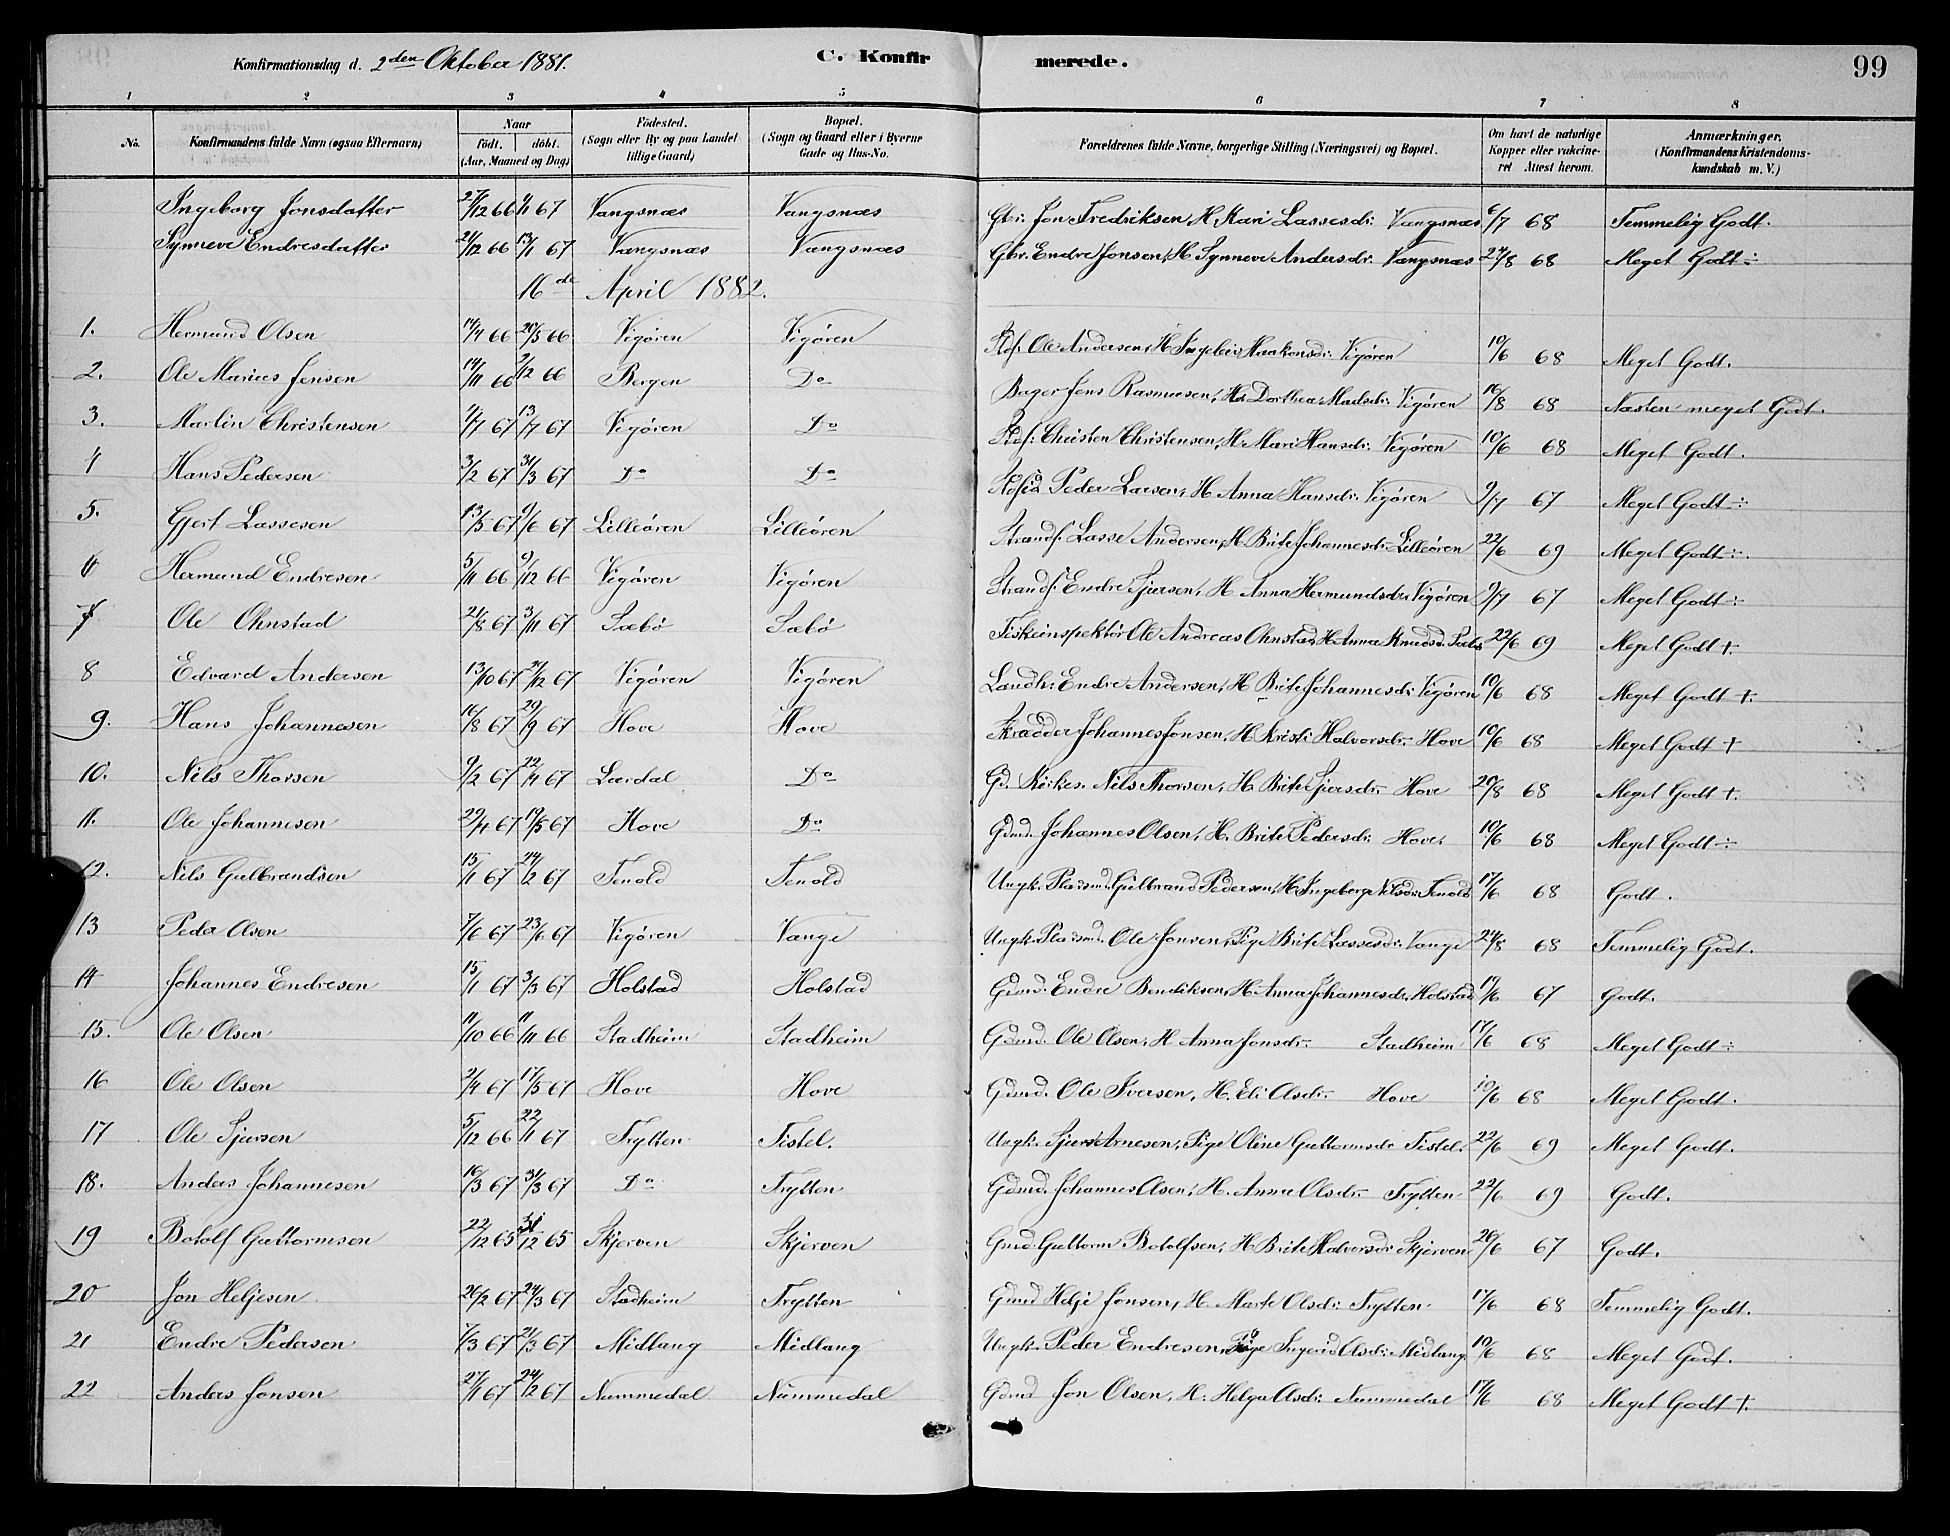 Konfirmationsdag d. 2den Oktober 1881. C. Konfir merede. 99
1 2 3 4 5 6 7 8
No. Konfirmandens fulde Navn (ogsaa Efternavn) Naar födt. döbt. (Aar, Maaned og Dag) Födested. (Sogn eller By og paa Landet tillige Gaard) Bopæl. (Sogn og Gaard eller i Byerne Gade og Hus-No. Forældrenes fulde Navne, borgerlige Stilling (Næringsvei) og Bopæl. Om havt de naturlige Kopper eller vakcineret Attest herom. Anmærkninger. (Konfirmandens Kristendomskundskab m. V.)
Ingeborg Jonsdatter 27/12 66 67 Vangsnæs Vangsnæs Gbr. Jon Fredriksen, H. Kari Lassesdr. Vangsnæs 6/7 68 Temmelig Godt.
Synneve Endresdatter 21/12 66 13/1 67 Vangsnæs Vangsnæs Gbr. Endre Jonsen, H. Synneve Andersdr. Vangsnæs 24/8 68 Meget Godt ÷
16de April 1882.
1. Hermund Olsen 14/4 66 20/5 66 Vigøren Vigøren Stdf. Ole Andersen, H. Ingebor Haakonsdr. Vigøren 10/6 68 Meget Godt.
2. Ole Marius Jensen 14/11 66 2/12 66 Bergen Do Bager Jens Rasmussen, H. Dorthea Madsdr. Vigøren 16/8 68 Næsten meget Godt.
3. Martin Christensen 4/7 67 13/7 67 Vigøren Do Stdf. Christen Christensen, H. Mari Hansdr. Vigøren 10/6 68 Meget Godt.
4 Hans Pedersen 3/2 67 31/3 67 Do Do Peder Larsen, H. Anna Hansdr. Vigøren 9/7 67 Meget Godt ÷
5. Gjert Lassesen 13/5 67 9/6 67 Lilleøren Lilleøren Strandf. Lasse Andersen, H. Brite Johannesdr. Lilleøren 22/6 69 Meget Godt ÷
6 Hermund Endresen 5/11 66 9/12 66 Vigøren Vigøren Strandf. Endre Sjursen, H. Anna Hermundsdr. Vigøren 9/7 67 Meget Godt ÷
7 Ole Ohnstad 21/8 67 3/11 67 Sæbø Sæbø Fiskeinspektør Ole Andreas Ohnstad, H. Anna Knudsd. Sæbø 22/6 69 Meget Godt +
8 Edvard Andersen 13/10 67 67 Vigøren Vigøren Landh. Endre Andersen, H. Brite Johannesdr. Vigøren 10/6 68 Meget Godt +
9. Hans Johannesen 16/8 67 29/9 67 Hove Hove Skrædder Johannes Jonsen, H. Kristi Halvorsdr. Hove 10/6 68 Meget Godt +
10. Nils Thorsen 9/2 67 22/4 67 Lærdal Do Gd. Kirkes. Nils Thorsen, H. Brite Sjursdr. Hove 20/8 68 Meget Godt +
11. Ole Johannesen 22/4 67 19/5 67 Hove Do Gdmd. Johannes Olsen, H. Brite Pedersdr. Hove. 10/6 68 Meget Godt ÷
12. Nils Gulbrandsen 15/1 67 24/2 67 Tenold Tenold Ungk. Pladsmd. Gulbrand Pedersen, H. Ingeborg Nilsdr. Tenold 17/6 68 Godt.
13 Peder Olsen 7/6 67 23/6 67 Vigøren Vange Ungk. Pladsmd. Ole Jonsen, Pige Brite Lassesdr. Vange 24/8 68 Temmelig Godt.
14 Johannes Endresen 15/1 67 3/3 67 Holstad Holstad Gdmd. Endre Bendiksen, H. Anna Johannesdr. Holstad 19/6 67 Godt.
15. Ole Olsen 11/10 66 11/11 66 Stadheim Stadheim Gdmd. Ole Olsen, H. Anna Jonsdr. Stadheim 17/6 68 Meget Godt ÷
16 Ole Olsen 2/4 67 17/5 67 Hove Hove Gdmd. Ole Iversen, H. Eli Olsdr. Hove 10/6 68 Meget Godt.
17 Ole Sjursen 5/12 66 22/1 67 Trytten Tistel. Ungk. Sjurd Arnesen, Pige Oline Guttormsdr. Tistel. 22/6 69 Meget Godt.
18. Anders Johannesen 16/3 67 31/3 67 Do Trytten Gdmd. Johannes Olsen, H. Anna Olsdr. Trytten 22/6 69 Godt.
19 Botolf Guttormsen 22/12 65 31/12 65 Skjerven Skjerven Gmd. Guttorm Botolfsen, H. Brite Halvorsdr. Skjerven 26/6 67 Godt.
20 Jon Heljesen 26/2 67 24/3 67 Stadheim Trytten Gdmd Helje Jonsen, H. Marte Olsdr. Trytten 17/6 68 Temmelig Godt.
21 Endre Pedersen 7/3 67 21/3 67 Midlang Midlang Ungk. Peder Endresen, Pige Ingerid Olsdr. Midlang. 10/6 68 Meget Godt.
22 Anders Jonsen 27/1 67 24/2 67 Nummedal Nummedal Gdmd Jon Olsen, H. Helga Olsdr. Nummedal 17/6 68 Meget Godt +